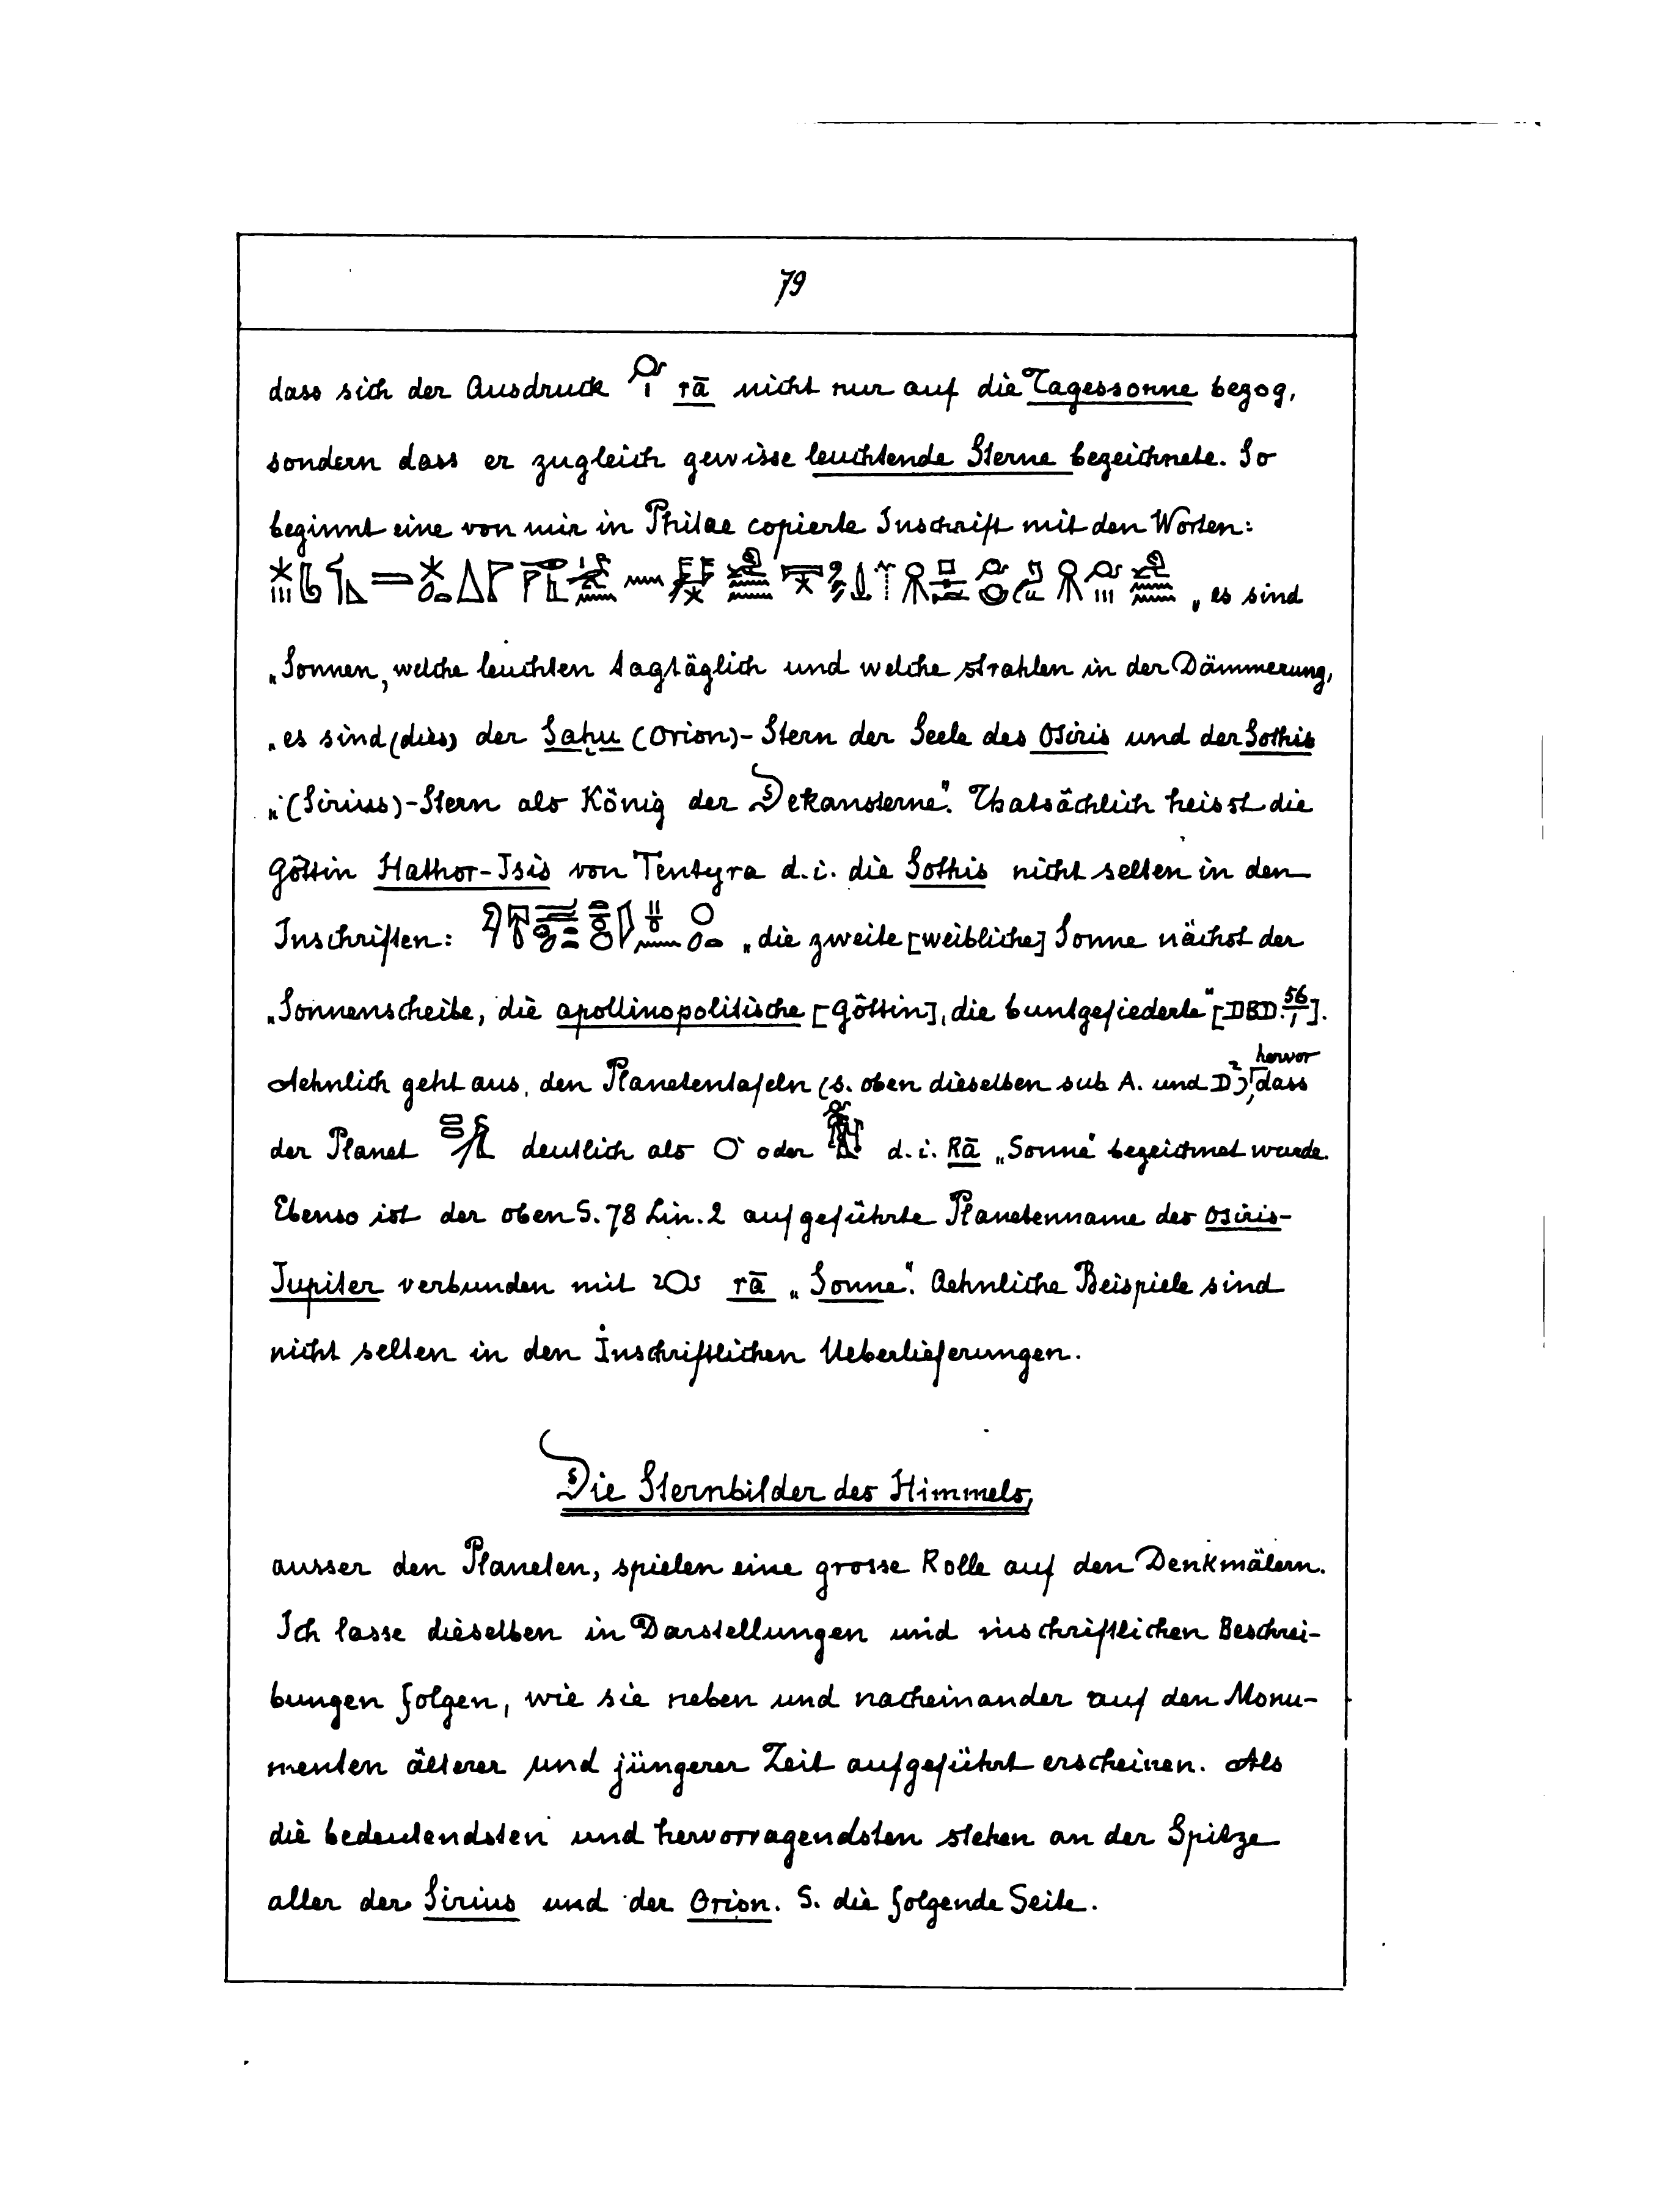 79
dass sich der Ausdruck rā nicht nur auf die Tagessonne bezog,
sondern dass er zugleich gewisse leuchtende Sterne bezeichnete. So
beginnt eine von mir in Philae copierte Inschrift mit den Worten:
„es sind
„Sonnen, welche leuchten tagtäglich und welche strahlen in der Dämmerung,
„es sind (dies) der Saḥu (Orion)-Stern der Seele des Osiris und der Sothis
„(Sirius)-Stern als König der Dekansterne“. Thatsächlich heisst die
Göttin Hathor-Isis von Tentyra d.i. die Sothis nicht selten in den
Inschriften: „die zweite [weibliche] Sonne nächst der
„Sonnenscheibe, die apollinopolitische [Göttin], die buntgefiederte“ [DBD. 56/1].
Aehnlich geht aus den Planetentafeln (s. oben dieselben sub A. und D²) hervor, dass
der Planet deutlich als oder d.i. Rā „Sonne“ bezeichnet wurde.
Ebenso ist der oben S. 78 Lin. 2 aufgeführte Planetenname des Osiris-
Jupiter verbunden mit rā „Sonne“. Aehnliche Beispiele sind
nicht selten in den Inschriftlichen Ueberlieferungen.
Die Sternbilder des Himmels,
ausser den Planeten, spielen eine grosse Rolle auf den Denkmälern.
Ich lasse dieselben in Darstellungen und inschriftlichen Beschrei-
bungen folgen, wie sie neben und nacheinander auf den Monu-
menten älterer und jüngerer Zeit aufgeführt erscheinen. Als
die bedeutendsten und hervorragendsten stehen an der Spitze
aller der Sirius und der Orion. S. die folgende Seite.